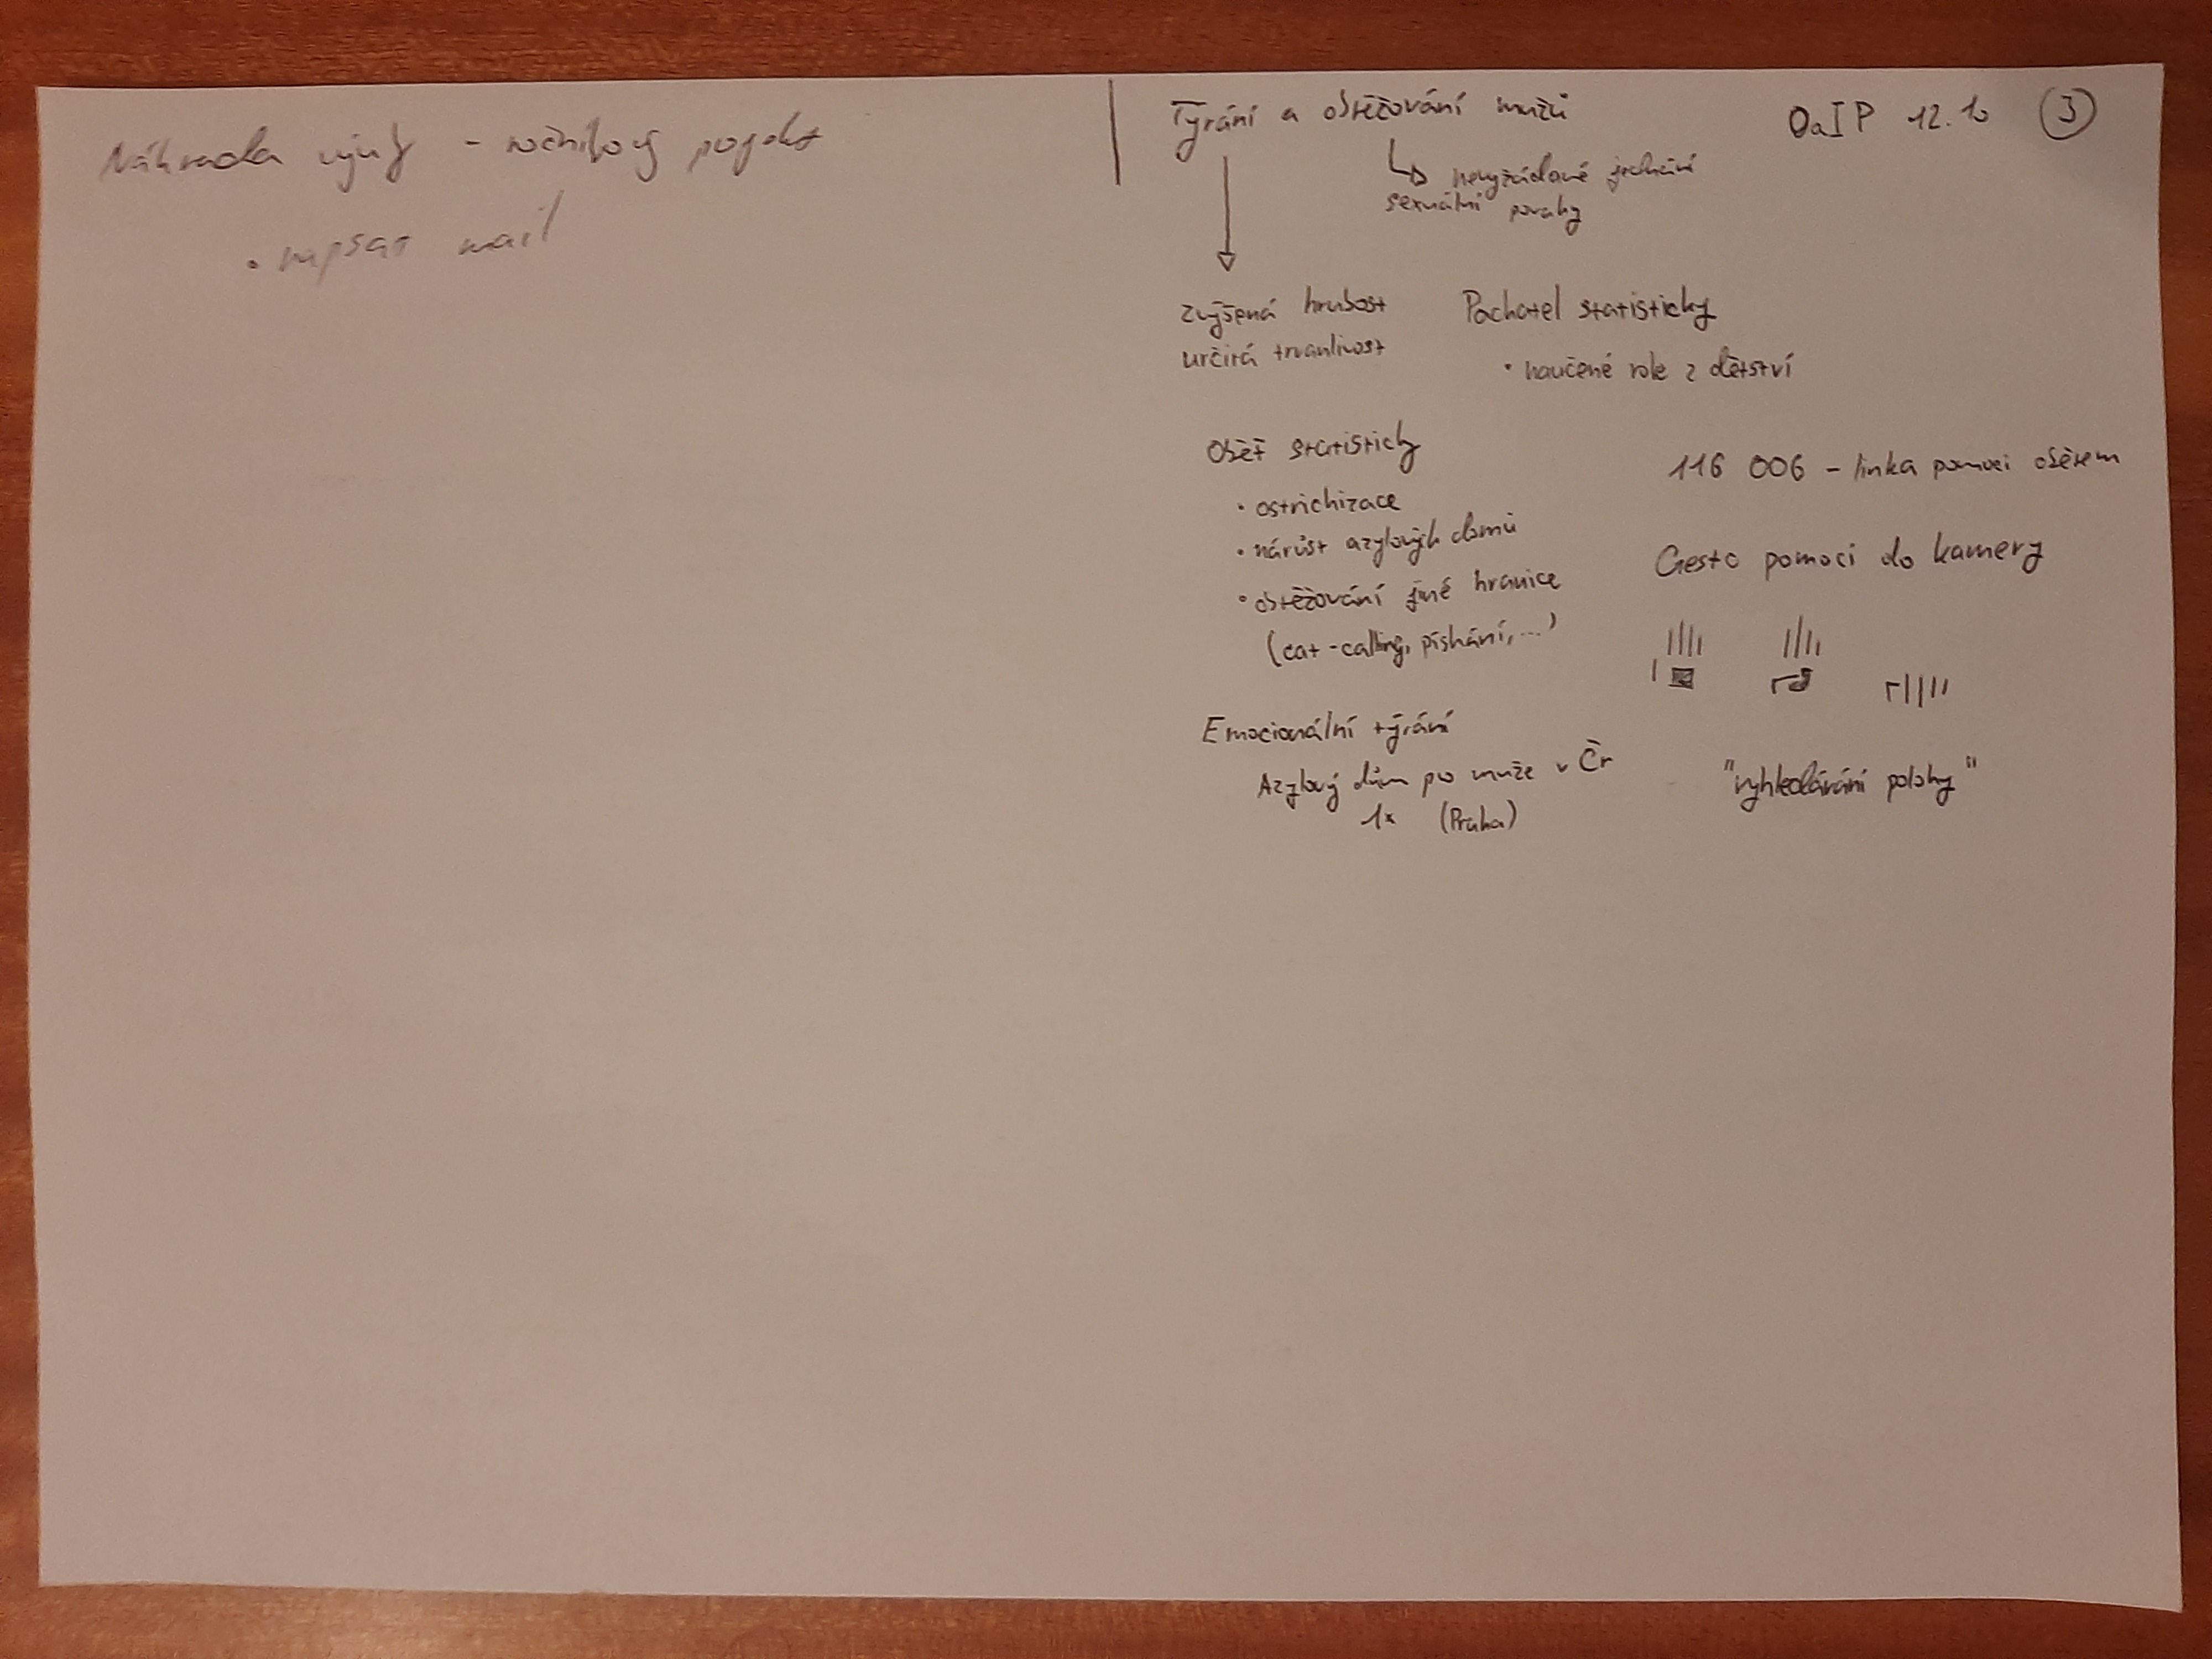 Náhrada výuky - ročníkový projekt
• napsat mail
Týrání a obtěžování mužů
OaIP 12.10 3
nevyžádané jednání
sexuální povahy
zvýšená hrubost
určitá trvanlivost
Pachatel statisticky
• naučené role z dětství
Oběť statisticky
• ostrichizace
• nárůst azylových domů
• obtěžování jiné hranice
(cat-calling, pískání, ...)
116 006 - linka pomoci obětem
Gesto pomoci do kamery
Emocionální týrání
Azylový dům po muže v Čr
1x (Praha)
"vyhledávání polohy"